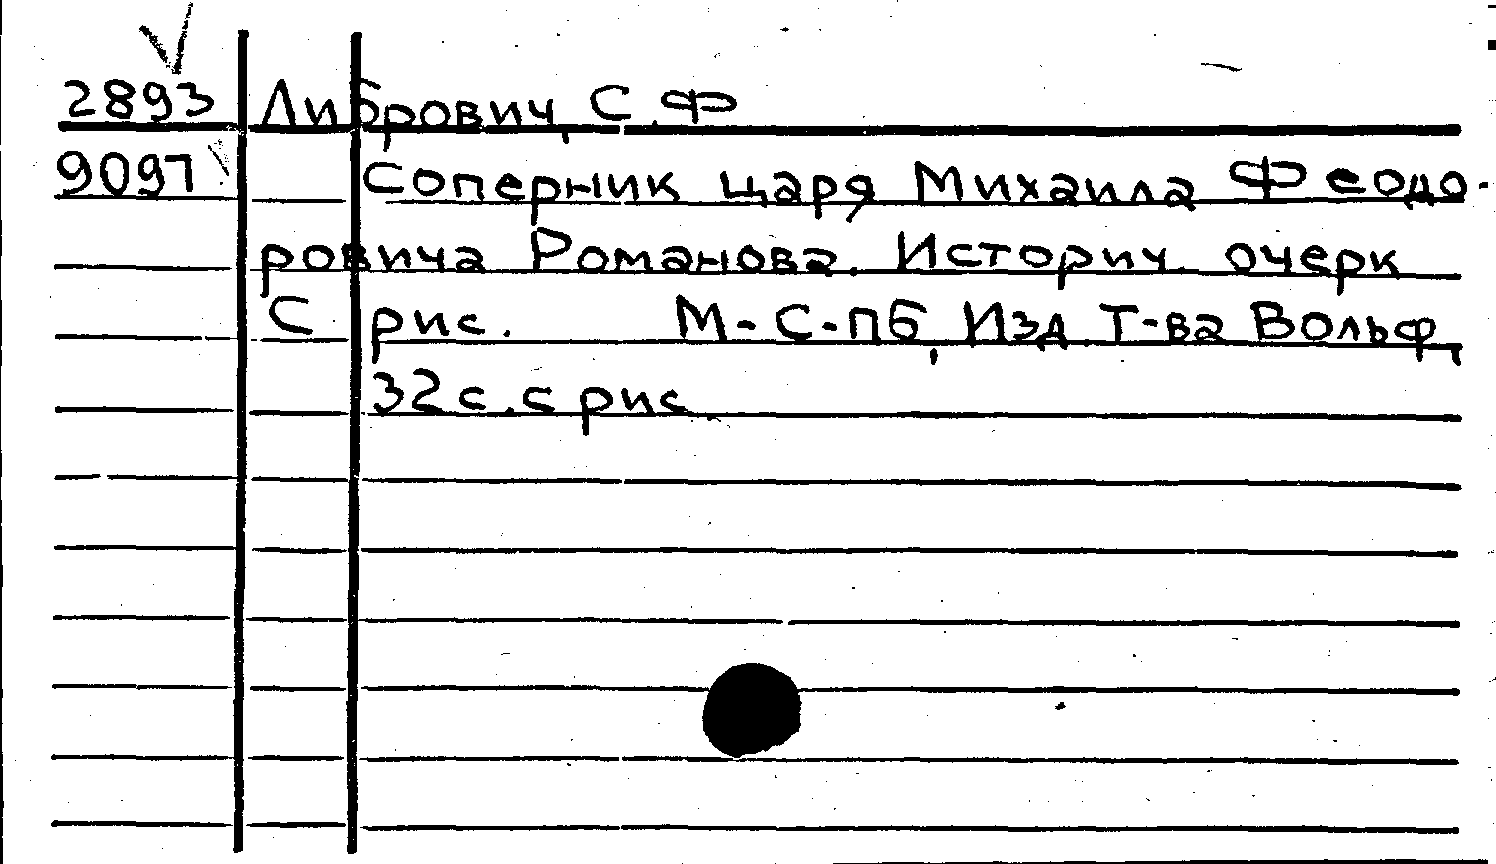 2893 Либрович, С.Ф
9097 Соперник царя Михаила Феодо-
ровича Романова. Историч. очерк
С рис. М.-С-ПБ, Изд. Т-ва Вольф,
32 с. с рис.